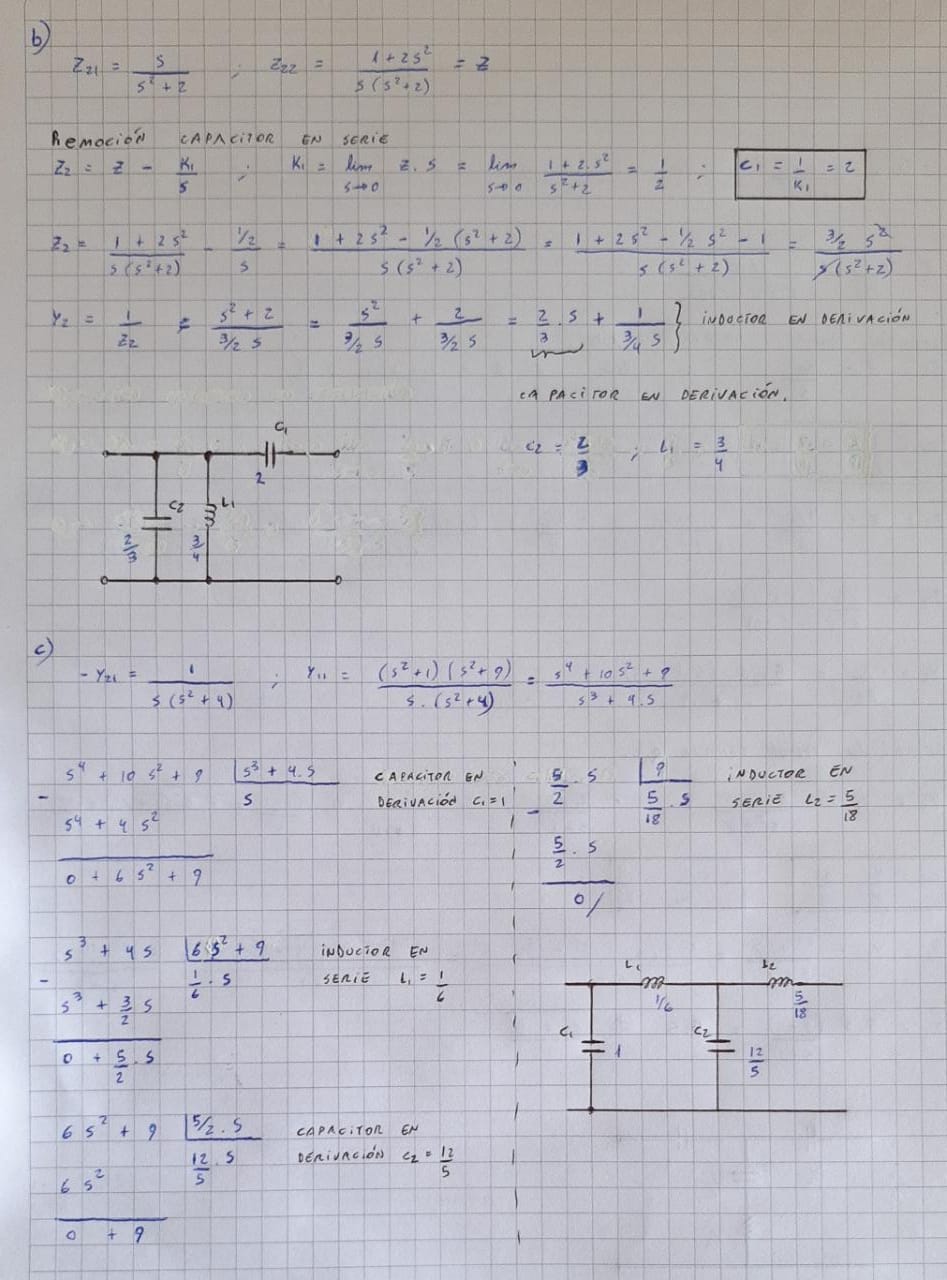 b)
Z21 = s / (s² + 2) ; Z22 = (1 + 2s²) / (s (s² + 2)) = Z
Remoción CAPACITOR EN SERIE
Z2 = Z - K1/s ; K1 = lim s→0 Z . s = lim s→0 (1 + 2.s²) / (s² + 2) = 1/2 ; C1 = 1/K1 = 2
Z2 = (1 + 2s²) / (s (s² + 2)) - (1/2)/s = (1 + 2s² - 1/2 (s² + 2)) / (s (s² + 2)) = (1 + 2s² - 1/2 s² - 1) / (s (s² + 2)) = (3/2 s²) / (s (s² + 2))
Y2 = 1/Z2 = (s² + 2) / (3/2 s) = s² / (3/2 s) + 2 / (3/2 s) = 2/3 . s + 1 / (3/4 s) } INDUCTOR EN DERIVACIÓN
CAPACITOR EN DERIVACIÓN.
C2 = 2/3 ; L1 = 3/4
C1
2
C2
L1
2/3
3/4
c)
-Y21 = 1 / (s (s² + 4)) ; Y11 = ((s² + 1) (s² + 9)) / (s . (s² + 4)) = (s⁴ + 10s² + 9) / (s³ + 4.s)
s⁴ + 10 s² + 9 | s³ + 4.s
CAPACITOR EN
- s
DERIVACIÓN C1 = 1
s⁴ + 4 s²
0 + 6 s² + 9
s³ + 4s | 6 s² + 9
INDUCTOR EN
- 1/6 . s
SERIE L1 = 1/6
s³ + 3/2 s
0 + 5/2 . s
6 s² + 9 | 5/2 . s
CAPACITOR EN
12/5 . s
DERIVACIÓN C2 = 12/5
6 s²
0 + 9
5/2 . s | 9
INDUCTOR EN
- 5/18 . s
SERIE L2 = 5/18
5/2 . s
0 /
L1
L2
1/6
5/18
C1
1
C2
12/5